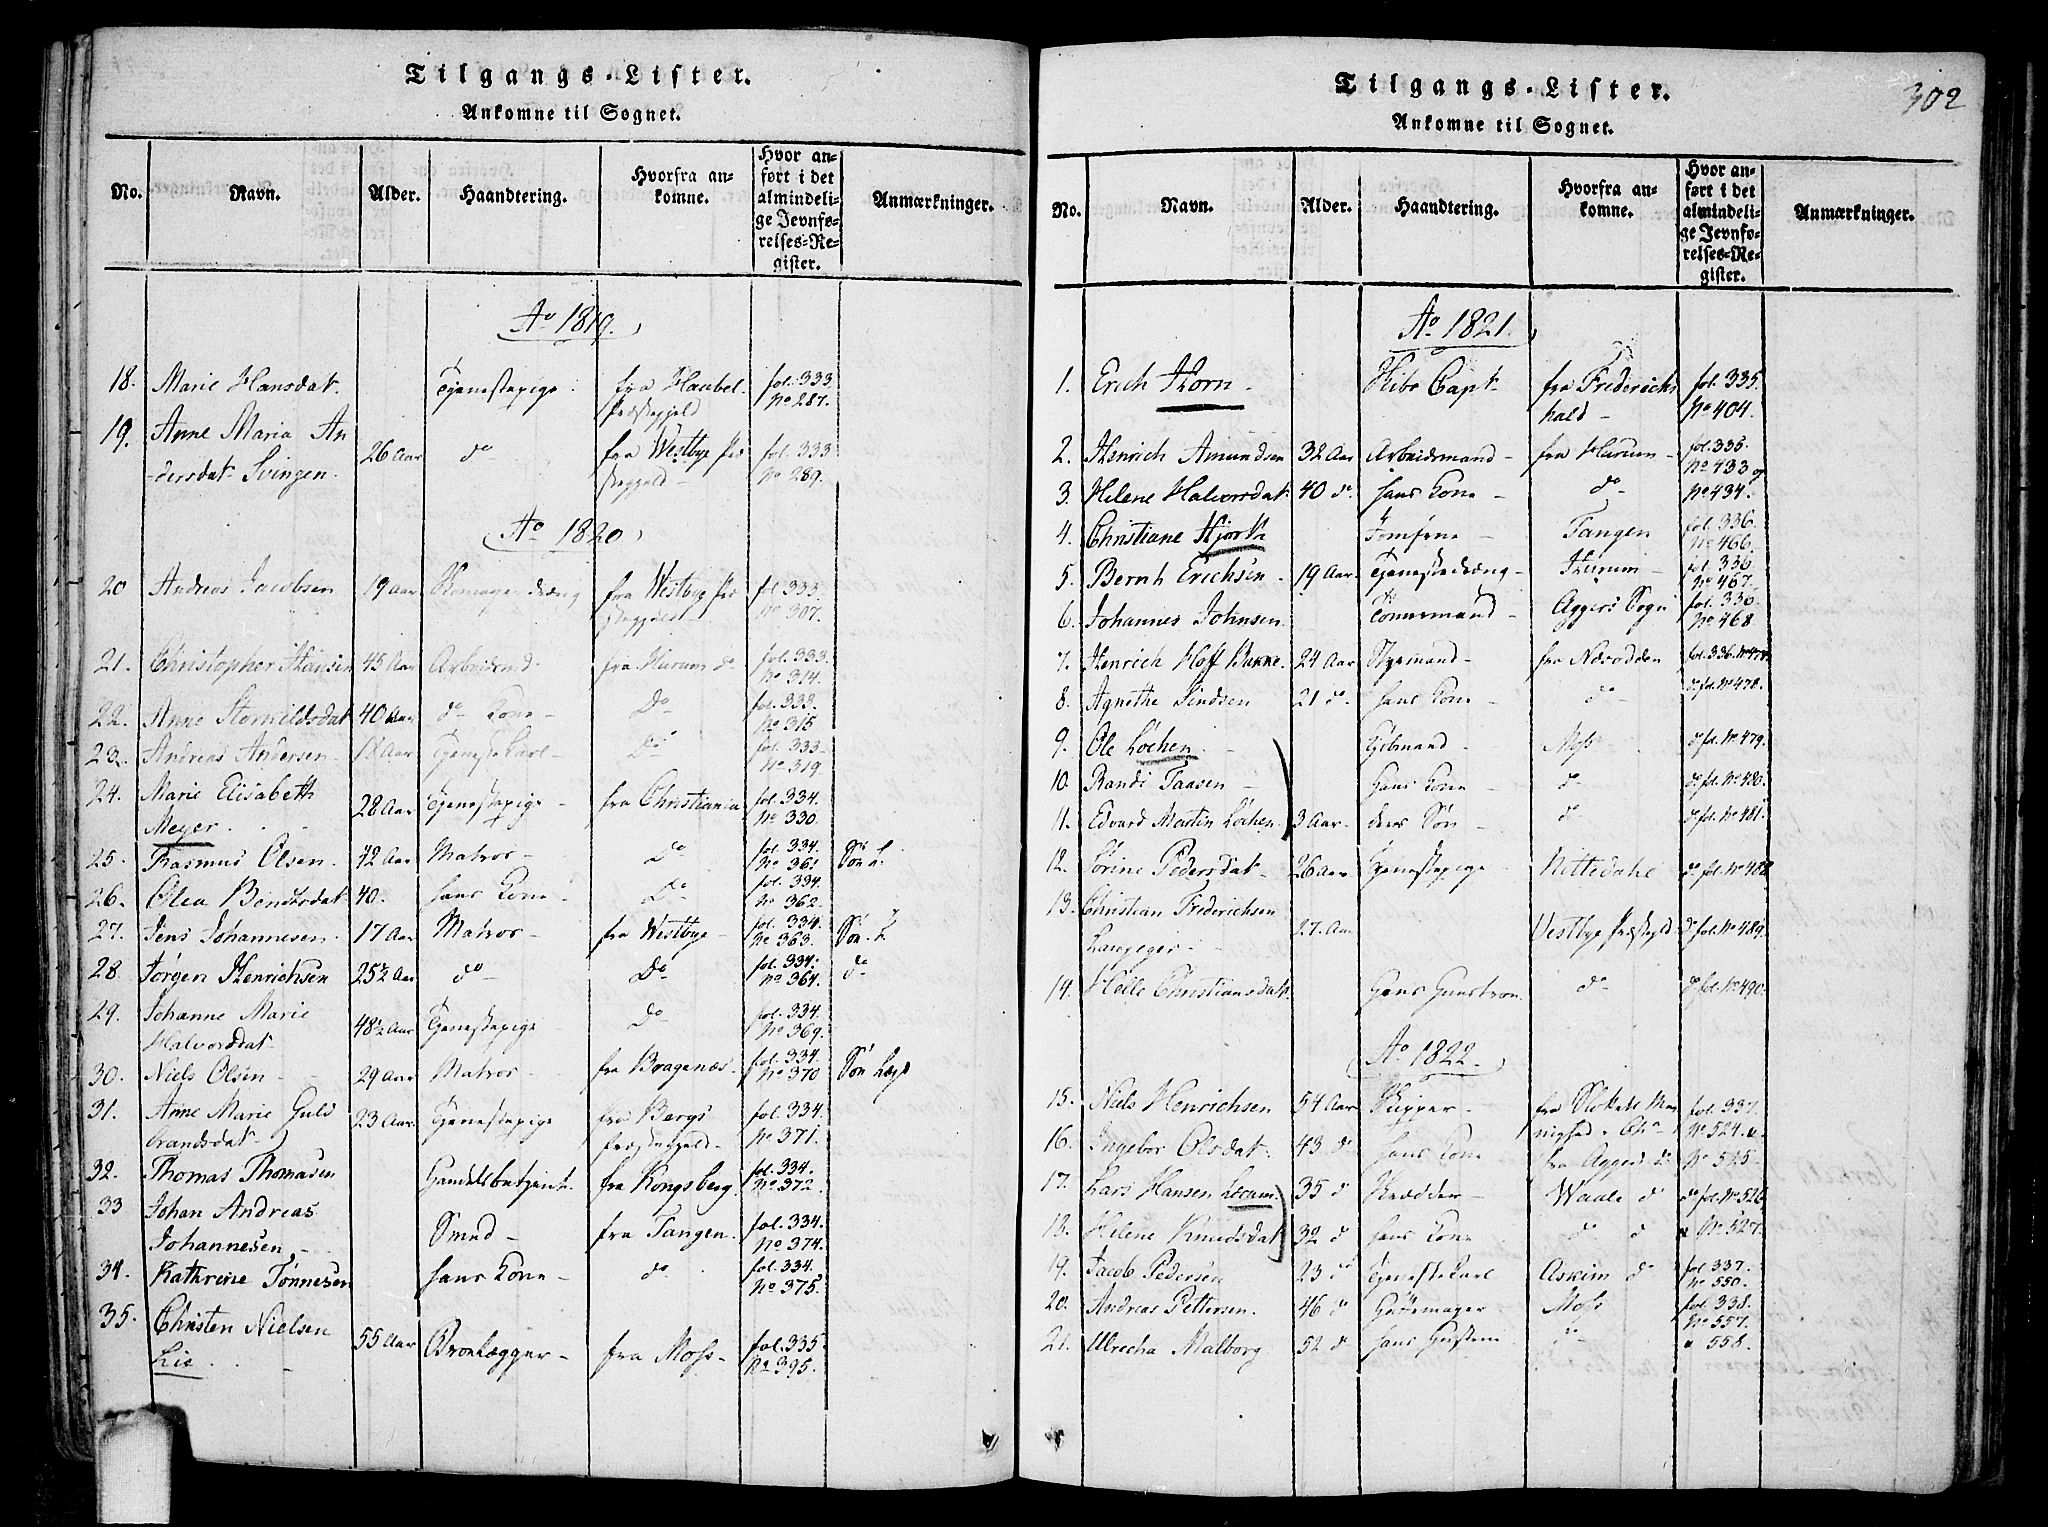 Tilgangs-Lister.
Ankomne til Sognet.
No. Navn. Alder. Haandtering. Hvorfra ankomne. Hvor anført i det almindelige Jevnførelses-Register. Anmærkninger.
Ao 1819.
18. Marie Hansdat. Tjenestepige fra Haabel fol. 333.
Præstegjeld No 287.
19. Anne Maria An
dersdat Svingen. 26 Aar do fra Westbye Præ fol. 333
stegjeld No 289.
Ao 1820
20 Andreas Jacobsen 19 Aar fra Westbye Præ fol 333.
stegjeld No 307.
21. Christopher Hansen 45 Aar Arbeidsmd. fra Hurum do fol. 333.
No 314.
22. Anne 40 Aar do Kone Do fol. 333.
No 315
23. Andreas Andersen 18 Aar Tjenestekarl Do fol. 333.
No 319
24. Marie Elisabeth 28 Aar Tjenestepige fra Christiania fol. 334.
Meyer. No 330
25. Rasmus Olsen. 42 Aar Matros Do fol. 334.
No 361
26. Olea Bendtsdat 40. hans Kone Do fol. 334.
No 362.
27. Jens Johannesen. 17 Aar Matros fra Westbye fol. 334.
No 363.
28 Jørgen Henrichsen 25½ Aar do Do fol. 334. do
No 364.
29. Johanne Marie 48½ Aar Tjenestepige Do fol. 334
Halvorsdat. No 369.
30. Niels Olsen 29 Aar Matros fra Bragenæs fol. 334.
No 370
31. Anne Marie Guld 23 Aar Tjenestepige fra Bergs fol. 334.
brandsdat. Præstegjeld No 371.
32. Thomas Thomasen Handelsbetjent. fra Kongsberg fol. 334.
No 372.
33 Johan Andreas
Johannesen Smed fra Tangen. fol. 334.
No 374.
34. Kathrine Tønnesen hans Kone do fol. 334.
No 375.
35. Christen Nielsen 55 Aar Broelægger fra Moss fol. 335
Lie. No 395.
302
Tilgangs-Lister.
Ankomne til Sognet.
No. Navn. Alder. Haandtering. Hvorfra ankomne. Hvor anført i det almindelige Jevnførelses-Register. Anmærkninger.
Ao 1821.
1. Erich Horn Skibs Capt fra Frederichs fol. 335.
hald No 404.
2. Henrich Amundsen 32 Aar Arbeidsmand fra Hurum fol. 335.
No 433 og
3. Helene Halvorsdat 40 do hans Kone do No 434.
4. Christiane Hjorth Jomfrue Tangen fol. 336.
No 466.
5. Bernt Erichsen 19 Aar Tjenestedreng Hurum fol. 336
No 467.
6. Johannes Johnsen Tømermand Aggers Sogn fol. 336.
No 468
7. Henrich Hoff 24 Aar Styrmand fra Næsodden fol. 336.
8. Agnethe 21 do hans Kone do do fol. No 478.
9. Ole Løchen Kjøbmand Moss do fol. No 479.
10. Randi hans Kone do do fol. No 480.
11. Edvard Martin Løchen. 3 Aar deres Søn do do fol. No 481.
12. Sørine Pedersdat 26 Aar Tjenestepige Nittedahl do fol. No 488
13. Christian Frederichsen
27. Aar Vestbye Præstegjeld do fol. No 489.
14. Helle Christiansdat. Hans Hustrue do do fol. No 490.
Ao 1822.
15. Niels Henrichsen 54 Aar Skipper fra fol. 337.
No 524.
16. Ingebor Olsdat. 43 do hans Kone fra Agger do No 525
17. Lars Hansen 35 do Skrædder Waale do do fol. No 526
18. Helene Knudsdat 32 do hans Kone do do No 527
19. Jacob Pedersen 23 do Tjenestekarl Askim do fol 337.
No 550.
20. Andreas Pettersen. 46 do Moss fol. 338.
No 557.
21. Ulrecha Malborg 52 do hans Hustrue do 558.